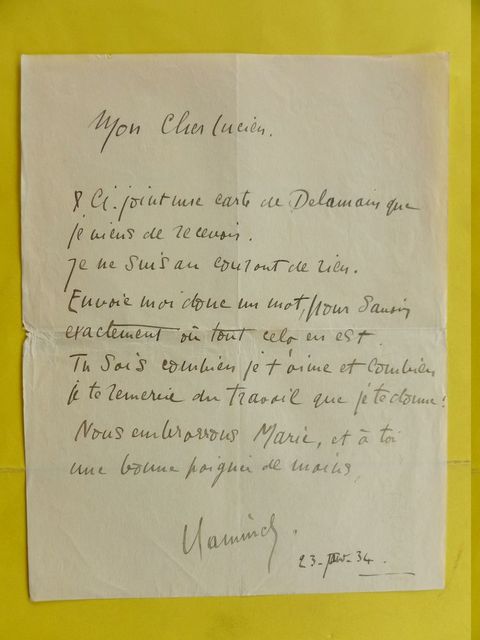 Mon Cher Lucien.
Ci-joint une carte de Delamain que
je viens de recevoir.
Je ne suis au courant de rien.
Envoie moi donc un mot, pour savoir
exactement où tout cela en est.
Tu sais combien je t'aime et combien
je te remercie du travail que je te donne!
Nous embrassons Marie, et à toi
une bonne poignée de mains,
Vlaminck.
23-  -34.